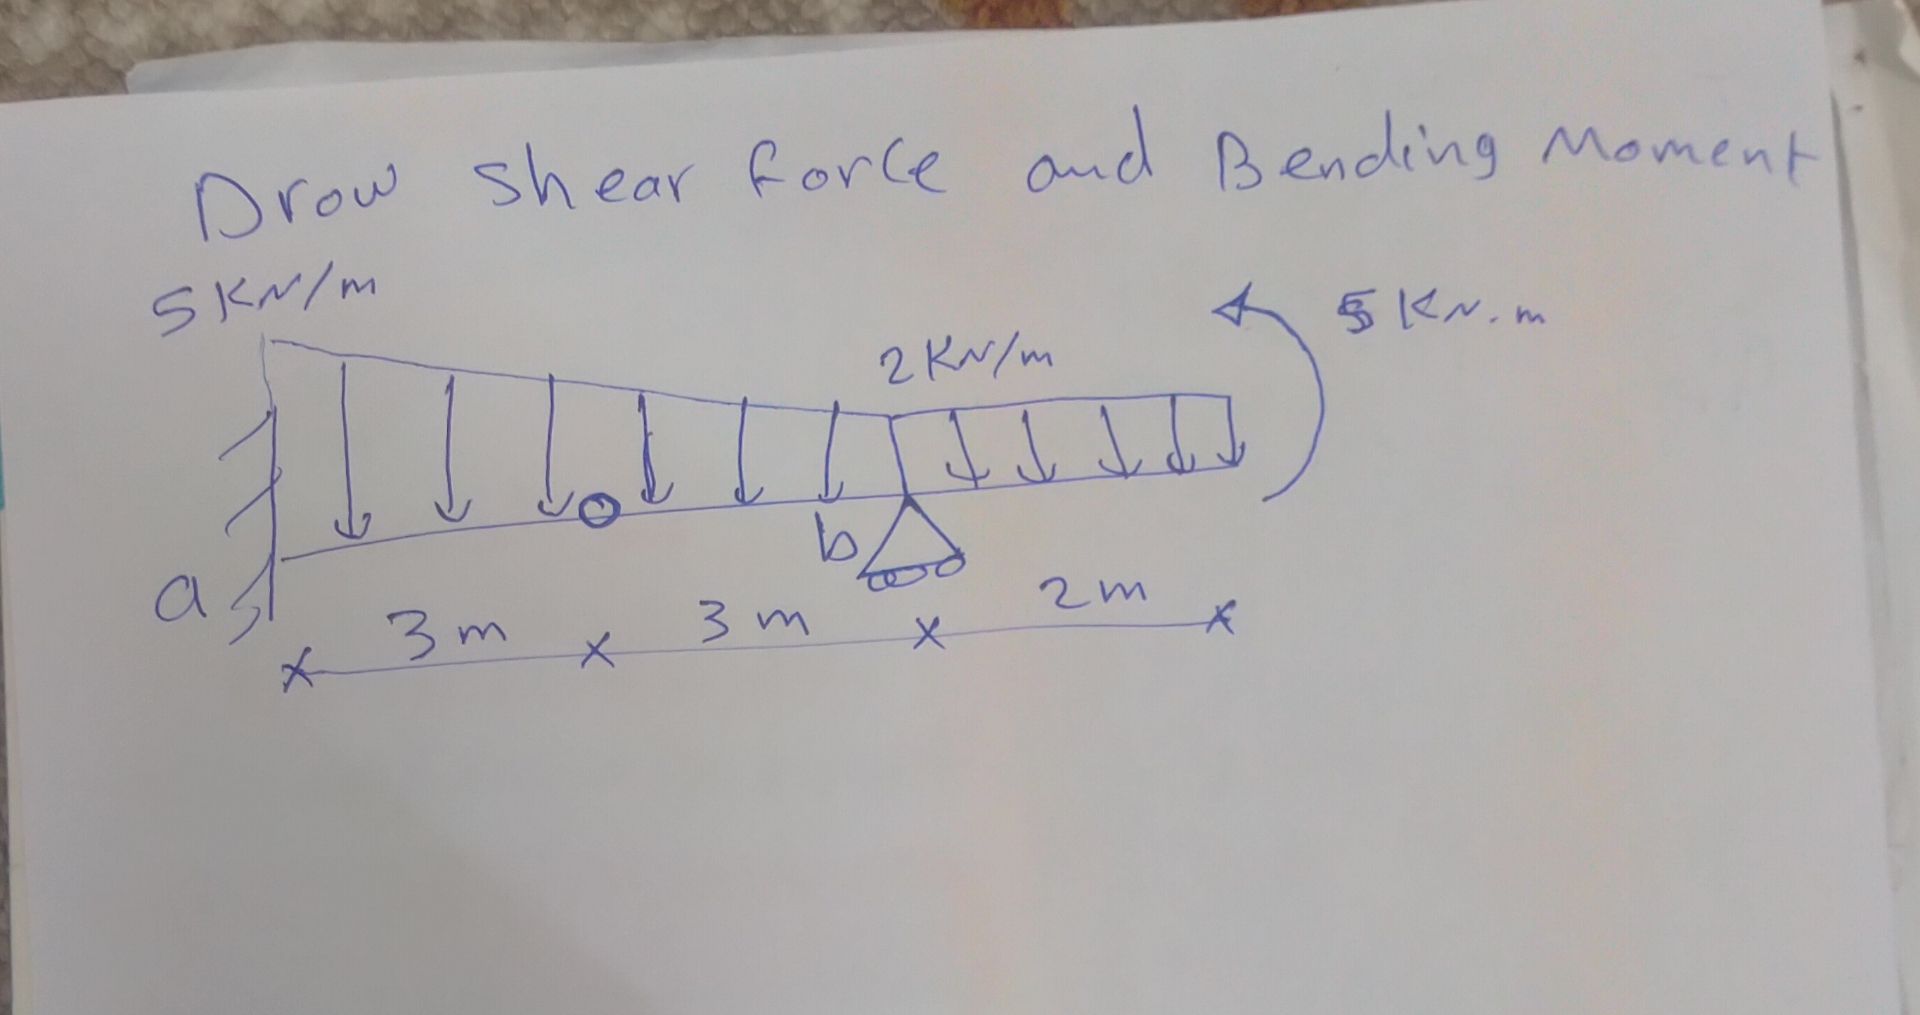 Drow shear force and Bending Moment
5 KN/m
2 KN/m
5 KN.m
a
b
3 m
3 m
2 m